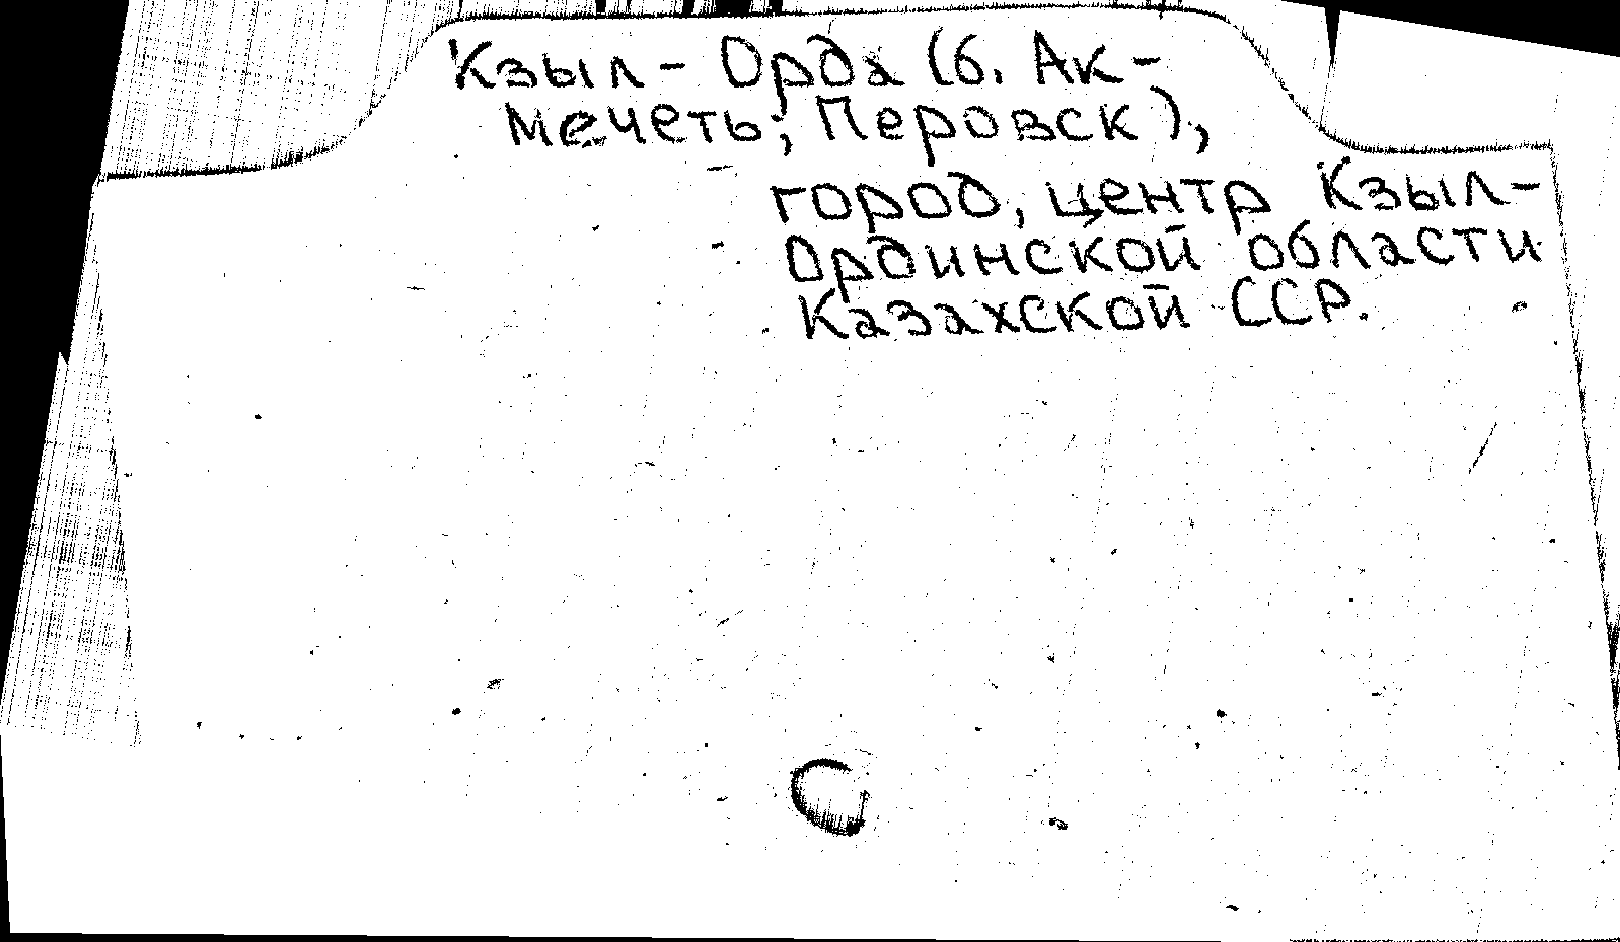 Кзыл - Орда (б. Ак-
Мечеть; Перовск),
город, центр Кзыл-
Ординской области
Казахской ССР.